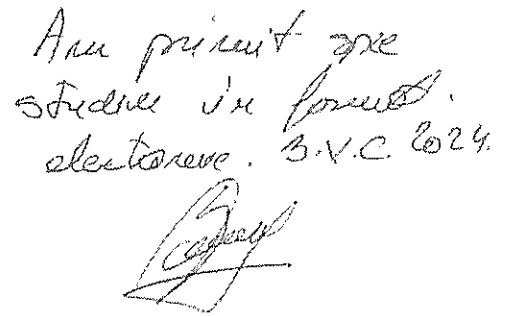 Am primit spre
studiu în format.
electronic. B.V.C. 2024.